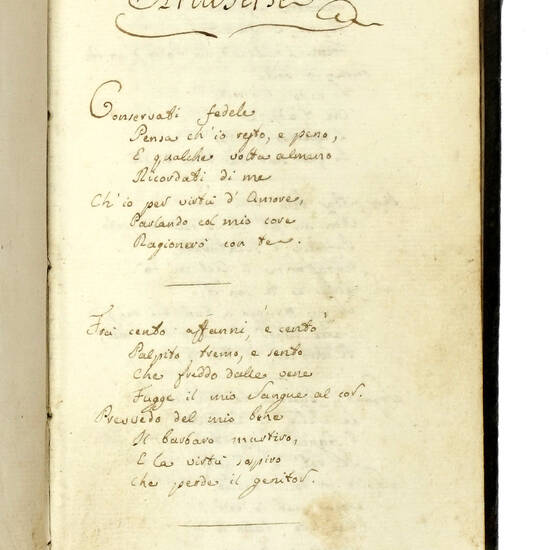 Artaserse
Conservati fedele
Pensa ch' io resto, e peno,
E qualche volta almeno
Ricordati di me
Ch' io per virtù d' Amore,
Parlando col mio core
Ragionerò con te.
Frà cento affanni, e cento
Palpito, tremo, e sento
Che freddo dalle vene
Fugge il mio sangue al cor.
Prevvedo del mio bene
Il barbaro martiro,
E la virtù sospiro
Che perde il genitor.